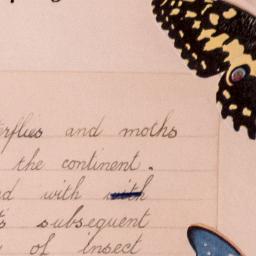 erflies and moths
the continent.
d with with
s subsequent
of Insect